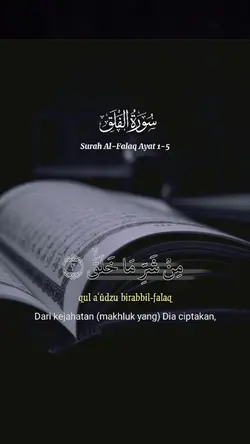 سُورَةُ الْفَلَقِ
Surah Al-Falaq Ayat 1-5
مِنْ شَرِّ مَا خَلَقَ ۙ ٢
qul a'ūdzu birabbil-falaq
Dari kejahatan (makhluk yang) Dia ciptakan,